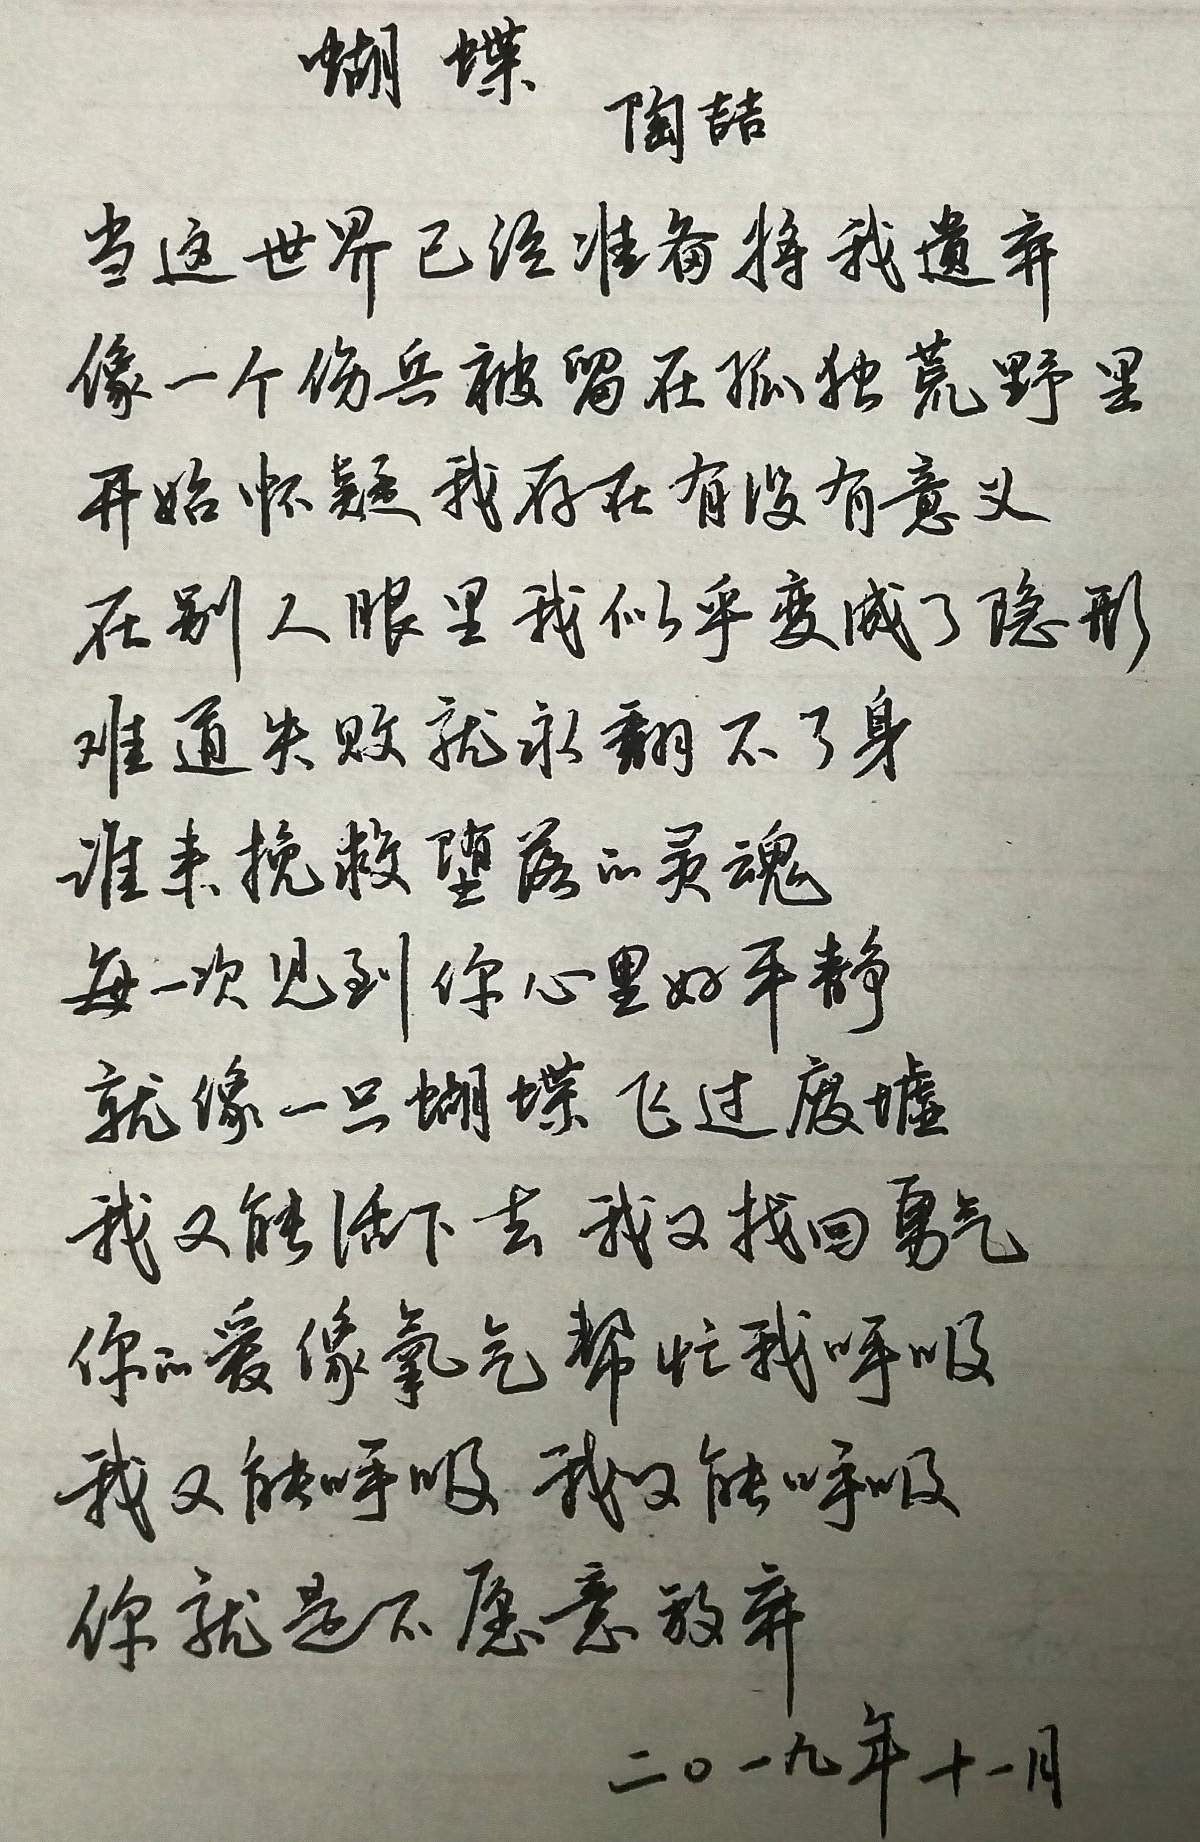 蝴蝶
陶喆
当这世界已经准备将我遗弃
像一个伤兵被留在孤独荒野里
开始怀疑我存在有没有意义
在别人眼里我似乎变成了隐形
难道失败就永翻不了身
谁来挽救堕落的灵魂
每一次见到你心里好平静
就像一只蝴蝶飞过废墟
我又能活下去 我又找回勇气
你的爱像氧气帮忙我呼吸
我又能呼吸 我又能呼吸
你就是不愿意放弃
二〇一九年十一月